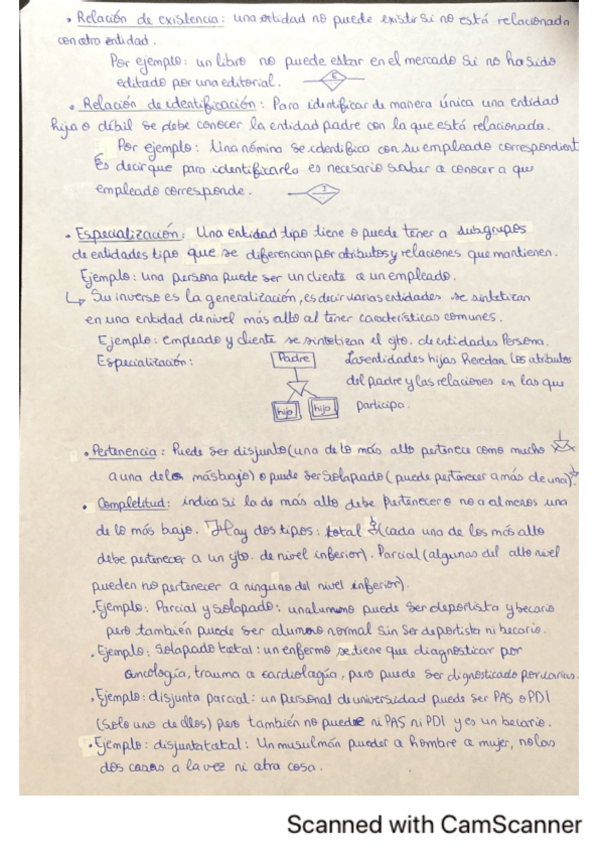 • Relación de existencia: una entidad no puede existir si no está relacionada
con otro entidad.
Por ejemplo: un libro no puede estar en el mercado si no ha sido
editado por una editorial. E
• Relación de identificación: Para identificar de manera única una entidad
hija o débil se debe conocer la entidad padre con la que está relacionada.
Por ejemplo: Una nómina se identifica con su empleado correspondient
Es decir que para identificarlo es necesario saber o conocer a que
empleado corresponde.
• Especialización: Una entidad tipo tiene o puede tener a subgrupos
de entidades tipo que se diferencian por atributos y relaciones que mantienen.
Ejemplo: una persona puede ser un cliente o un empleado.
↳ Su inverso es la generalización, es decir varias entidades se sintetizan
en una entidad de nivel más alto al tener características comunes.
Ejemplo: empleado y cliente se sintetizan el gto. de entidades Persona.
Especialización: Padre Las entidades hijas heredan los atributos
del padre y las relaciones en las que
hijo hijo participo.
• Pertenencia: Puede ser disjunto (una de lo más alto pertenece como mucho
a una de los más bajo) o puede ser solapado (puede pertenecer a más de una).
• Completitud: indica si la de más alto debe pertenecer o no a al menos una
de lo más bajo. Hay dos tipos: total (cada una de los más alto
debe pertenecer a un gto. de nivel inferior). Parcial (algunas del alto nivel
pueden no pertenecer a ninguno del nivel inferior).
• Ejemplo: Parcial y solapado: un alumno puede ser deportista y becario
pero también puede ser alumno normal sin ser deportista ni becario.
• Ejemplo: Solapado total: un enfermo se tiene que diagnosticar por
oncología, trauma o cardiología, pero puede ser dignosticado por varios.
• Ejemplo: disjunta parcial: un personal de universidad puede ser PAS o PDI
(solo uno de ellos) pero también no puede ni PAS ni PDI y es un becario.
• Ejemplo: disjunta total: Un musulmán puede o hombre o mujer, no las
dos cosas a la vez ni otra cosa.
Scanned with CamScanner